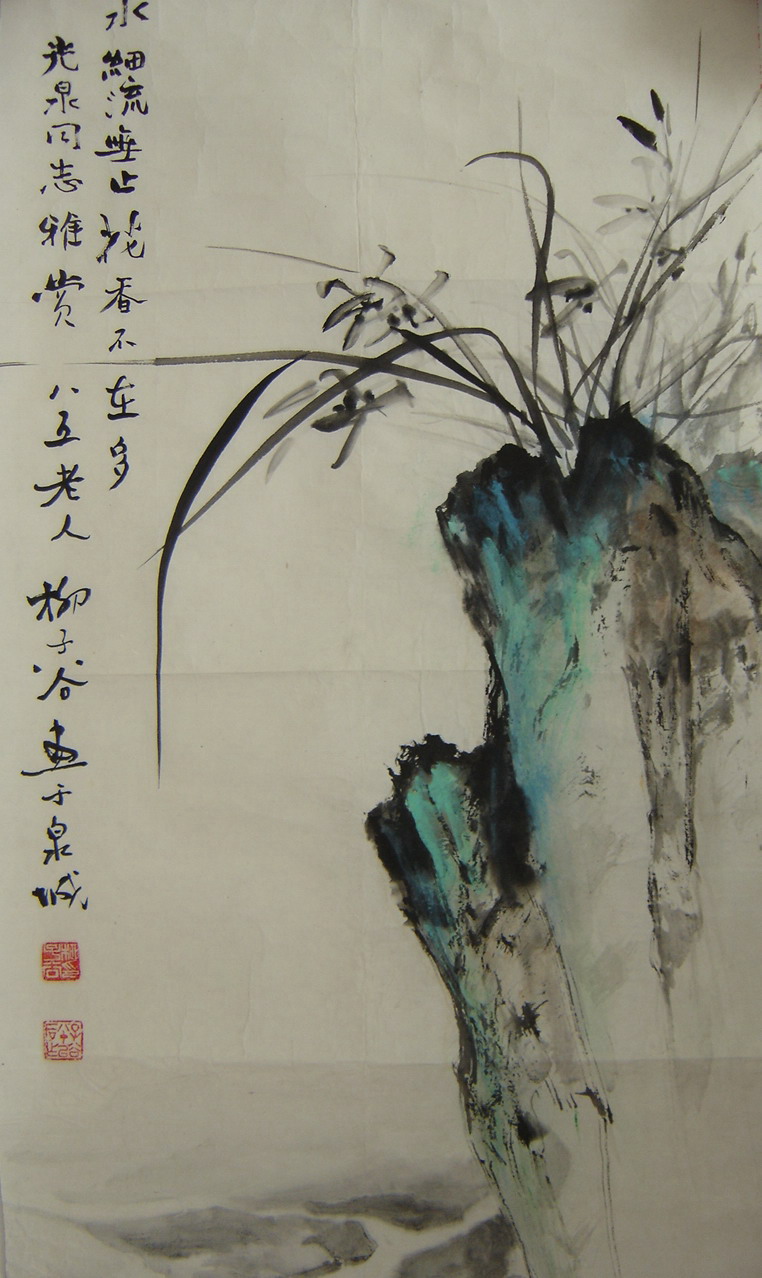 水細流無止 看不在多
光泉同志雅赏 八五老人 柳子谷画于泉城